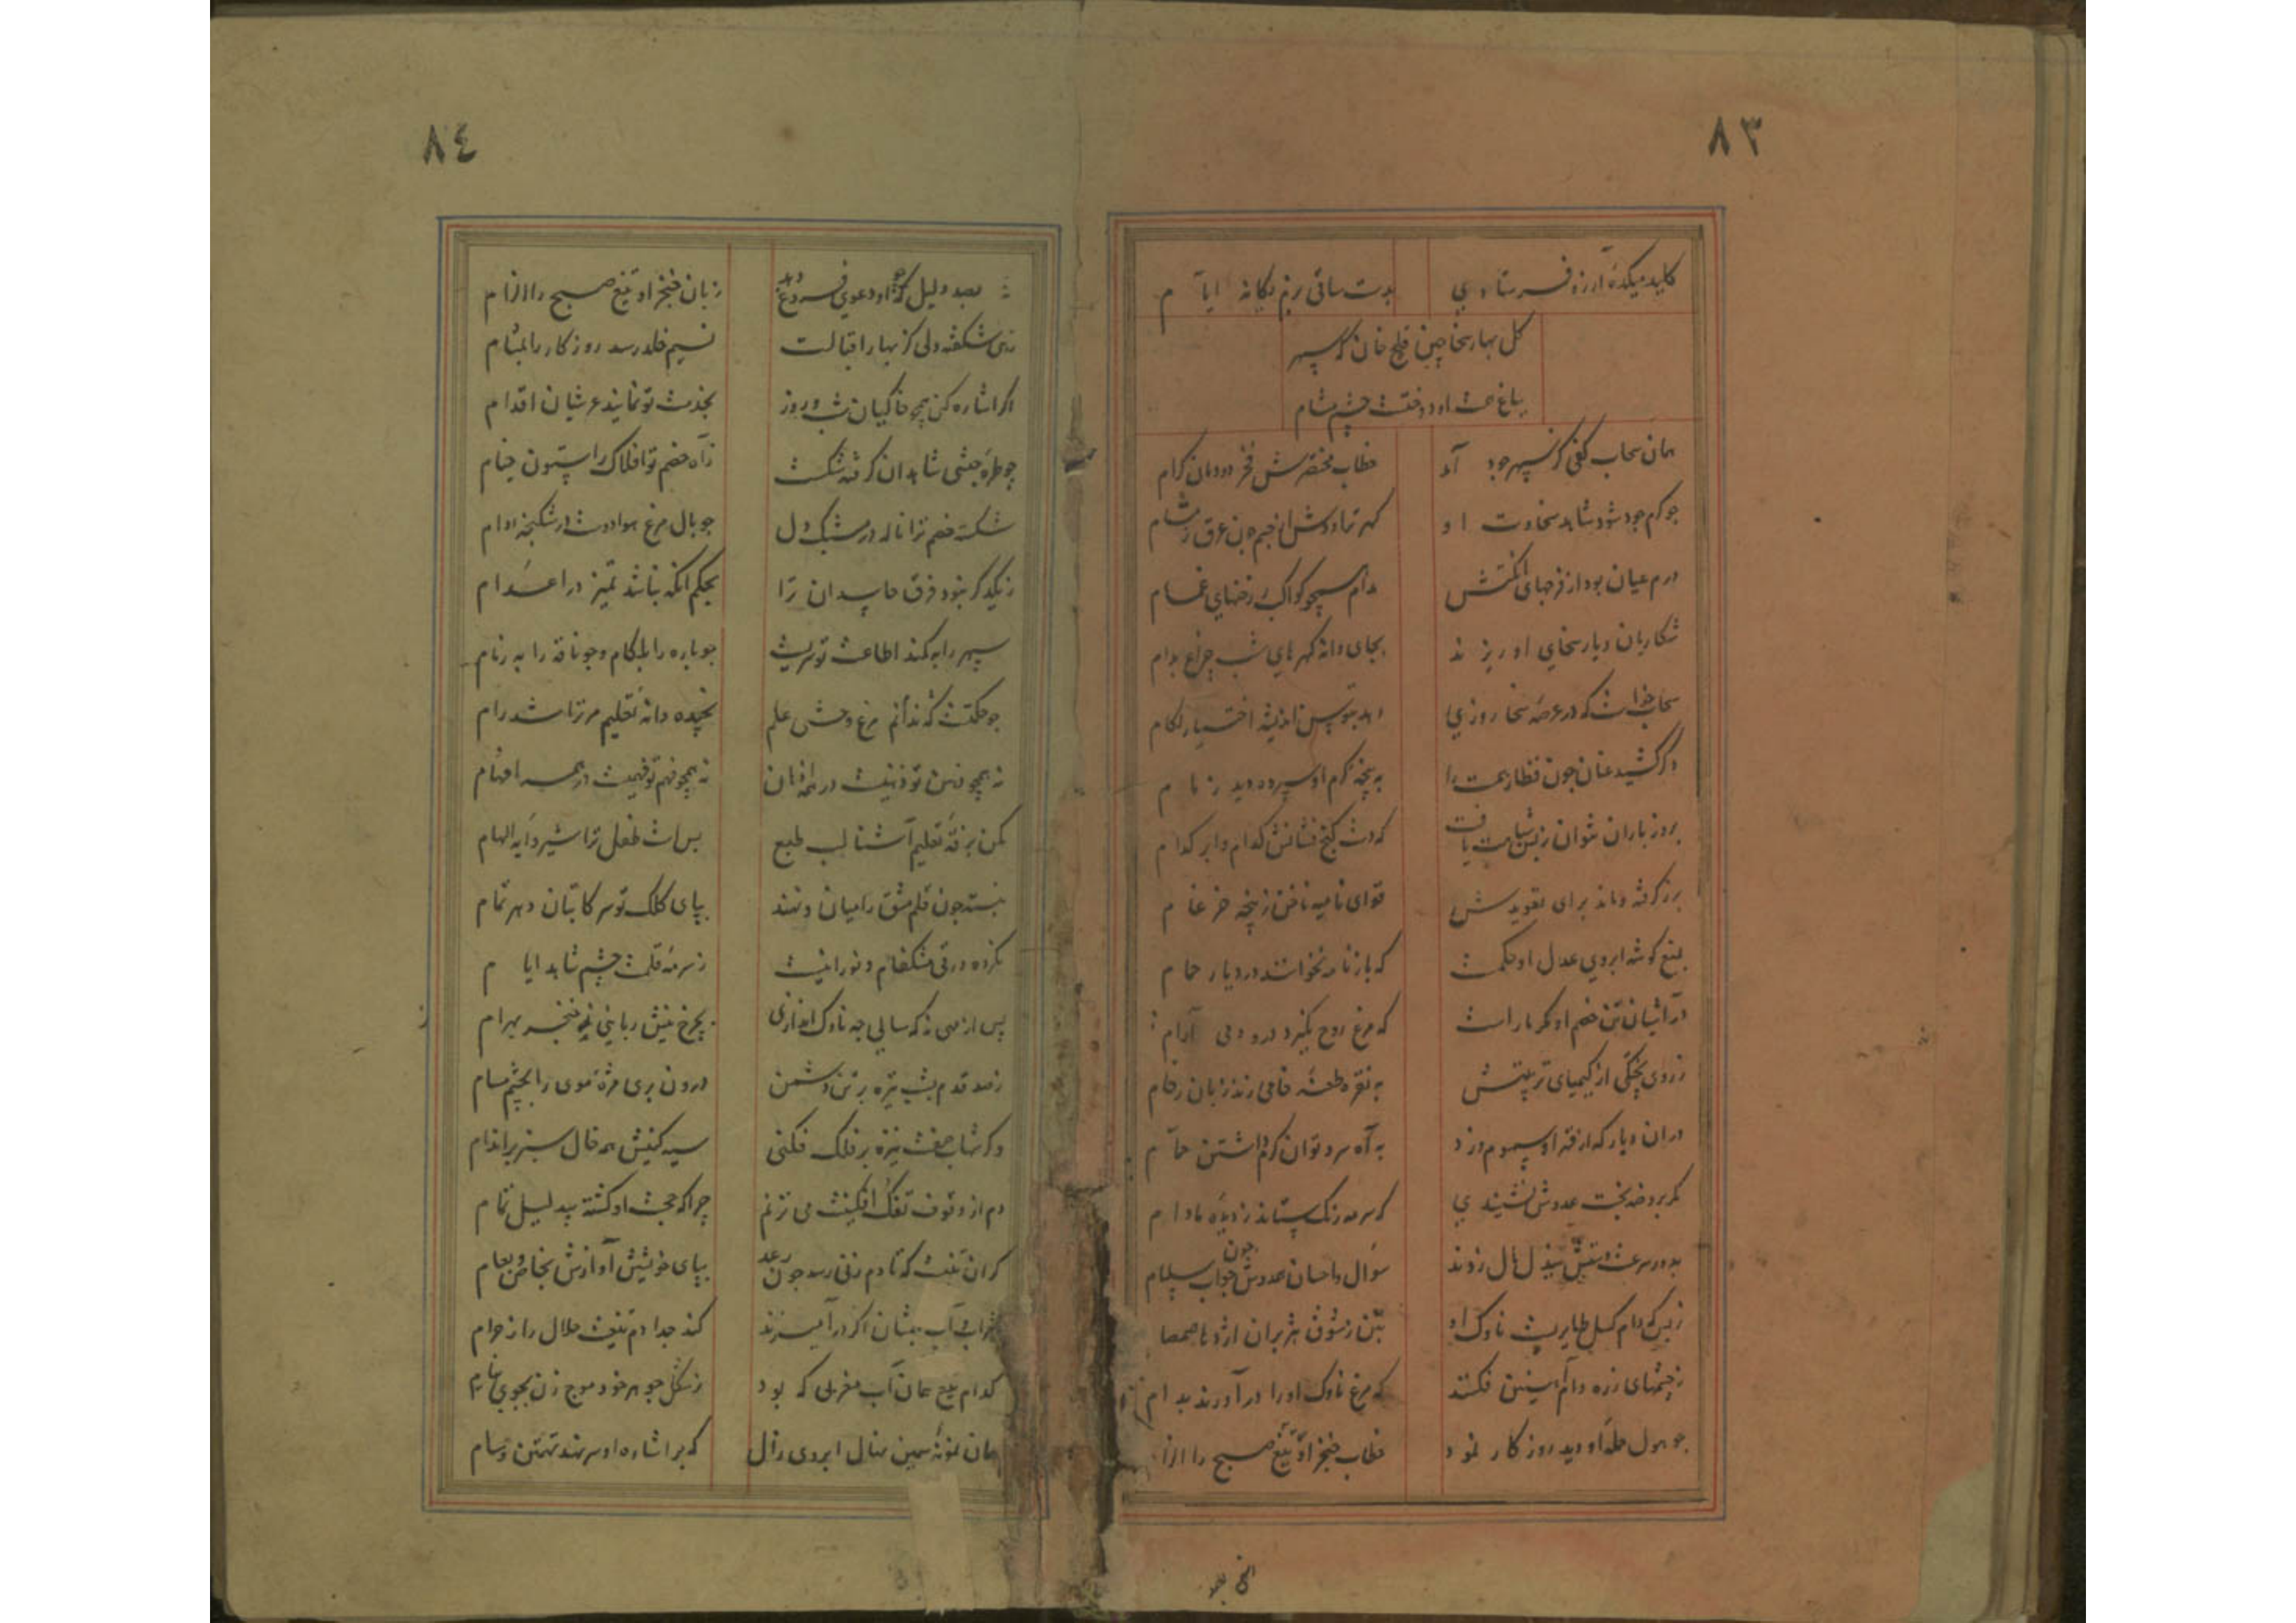 ٨٣
کلید میکدهٔ آرزو فرستادی بدست ساقی بزم یگانه ایام
گل بهار سخا چین قلیج خان که سپهر
بباغ او دوخت چشم مشام
همان سحاب کفی کز سپهر جود آمد خطاب مختصرش فخر دودمان کرام
چو گرم جود شود شاهد سخاوت او گهر تراودش از جبهه چون عرق ز مشام
درم عیان بود از فرجهای انگشتش مدام همچو کواکب ز رخنهای غمام
شکاریان دیار سخای او ریزند بجای دانه گهرهای شب چراغ بدام
سخاب که در عرصه سخا روزی دهد بتوسن اندیشه اختیار لگام
دگر کشید عنان چون قطار همت را به پنجه کرم او سپرده دید زمام
بروز باران نتوان ز بس شباهت یافت که دست گنج فشانش کدام و ابر کدام
برز گرفته دماند برای تعویذش قوای نامیه ناخن ز پنجه ضرغام
بتیغ گوشه ابروی عدل او حکمست که باز نامه نخوانند در دیار حمام
در آشیان تن خصم او مگر مار است که مرغ روح نگیرد درو دمی آرام
ز روی پختگی از کیمیای تربیتش به نقره طعنه خامی زند زبان رخام
دران دیار که از قهر او سموم وزد به آه سرد توان گرم داشتن حمام
مگر بروضه بخت عدوش ننشیندی که سرمه رنگ ستاند ز دیده بادام
بدور سرعت دستش ببذل مال زوند سوال و احسان عدوش چون جواب سلام
ز بس که دام گسل طایریست ناوک او بتن ز شوق هژبران اژدها صمصام
ز چشمهای زره دام آهنین فکنند که مرغ ناوک او را درآورند بدام
چو هول حمله او دید روزگار نمود خطاب خنجر او تیغ صبح را الزام
٨٤
بصد دلیل چو او دعوی فروغ دهد زبان خنجر او تیغ صبح را الزام
زهی شکفته دلی کز بهار اقبالت نسیم خلد رسد روزگار را بمشام
اگر اشاره کنی همچو خاکیان شب و روز بخدمت تو نمایند عرشیان اقدام
چو طره حبشی شاهدان گرفته شکست ز آه خصم تو افلاک را ستون خیام
شکسته خصم ترا ناله در مشبک دل چو بال مرغ هوادوست در شکنجه دام
ز یکدگر نبود فرق حاسدان ترا بحکم آنکه نباشد تمیز در اعدام
سپهر را به کمند اطاعت تو سریست چو باره را بلگام و چو ناقه را به زمام
چو حکمتست که ندانم مرغ وحشی علم نچیده دانه تعلیم مر ترا شد رام
نه همچو ذهن تو ذهنیست در همه اذهان نه همچو فهم تو فهمیست در همه افهام
مکن بزقه تعلیم آشنا لب طبع بس است طفل ترا شیر دایه الهام
نبسته چون قلم مشق را میان و نهند بپای کلک تو سر کاتبان دهر تمام
نکرده ورقی مشکفام و نورانیست ز سرمه قلمت چشم شاهد ایام
پس از مهی نه که سالی چه ناوک اندازی بچرخ نیش ربایی ز خنجر بهرام
ز صد قدم بشب تیره بر تن دشمن درون بری مژه موی را بچشم مسام
وگر شهاب صفت نیزه بر فلک فکنی سیه کنیش همه خال سبز بر اندام
دم از وقوف تفک افکنیت می نزنم چرا که حجت او گشته بی دلیل تمام
گران نیست که تا دم زنی رسد چون رعد بپای خویش آوازش بخاص و بعام
شراب و آب بهشتان اگر درآمیزند کند جدا دم تیغت حلال را ز حرام
کدام تیغ همان آب مغربی که بود ز شکل جوهر خود موج زن بجوی نیام
همان نمونه سیمین مثال ابروی زال که بر اشاره او سر نهد تهمتن و سام